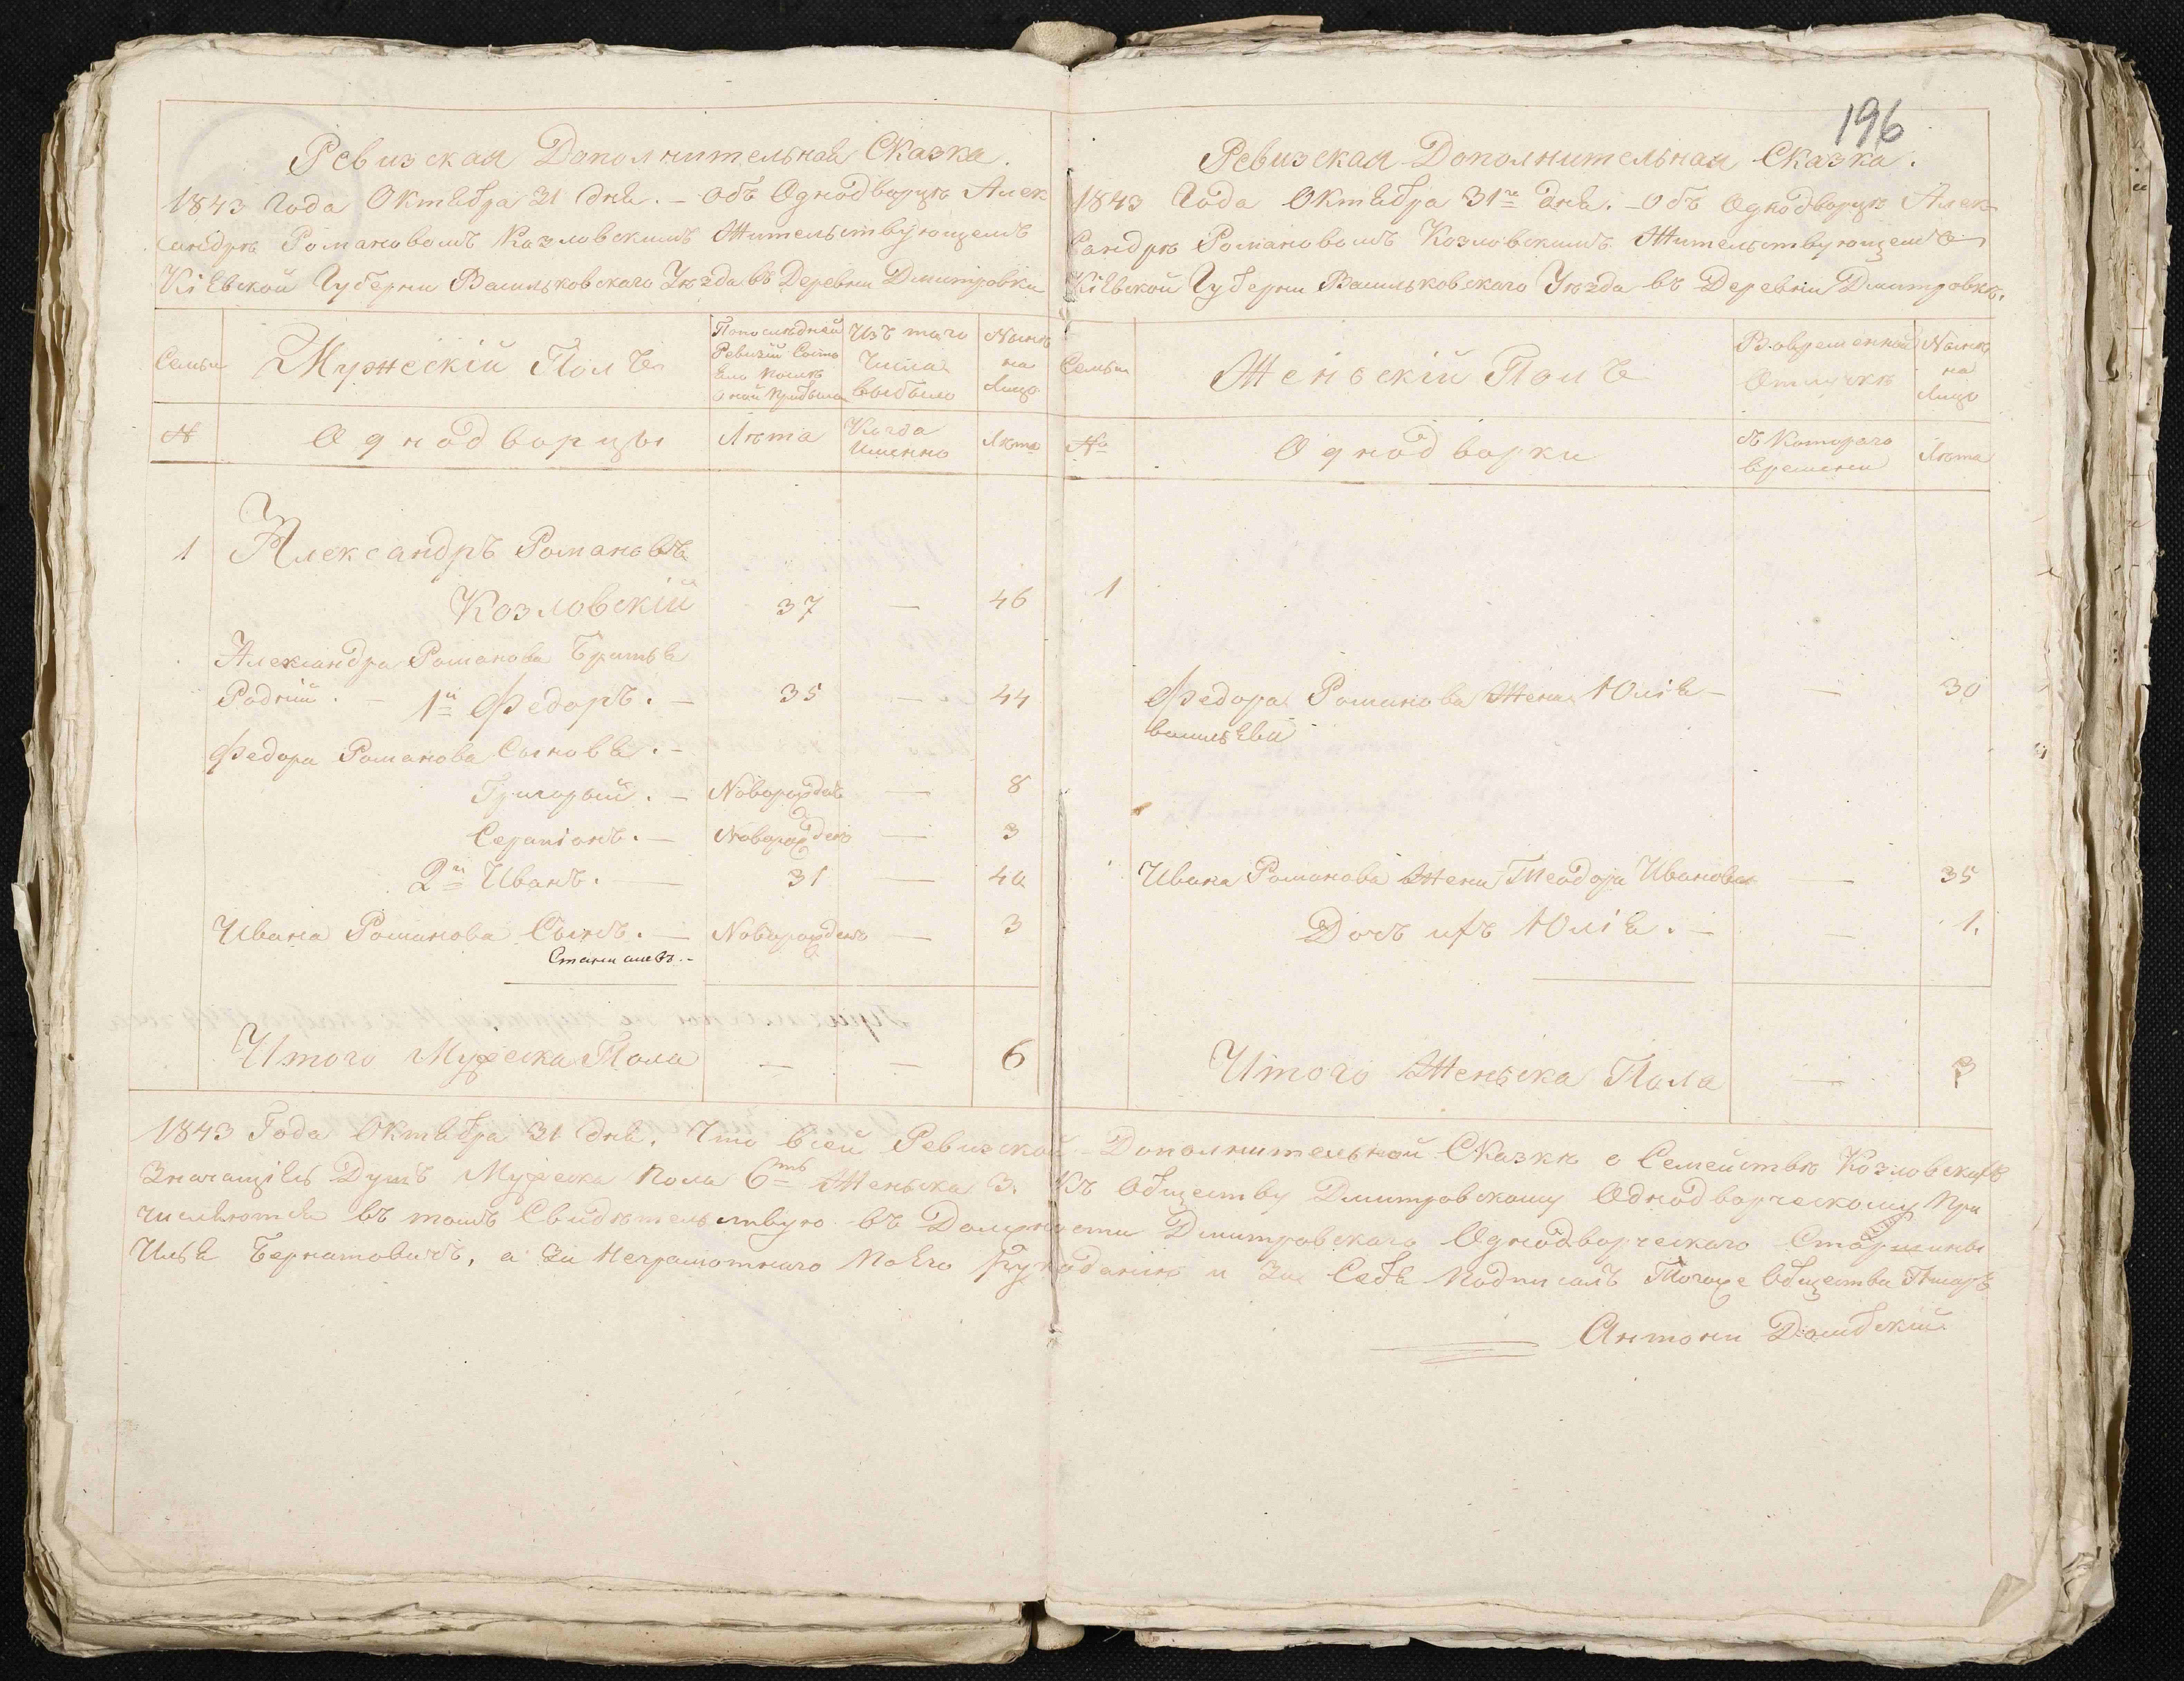 196
Ревизская Дополнительная Сказка.
1843 Года Октября 31 дня. – Объ Однодворцѣ Алек
сандрѣ Романовомъ Козловскимъ Жительствующемъ
Кіевской Губерни Васильковскаго Уѣзда въ Деревни Дмитровки
Семьи
Мужескій Полъ
По послѣдней
Ревизіи Состо
яло и послѣ
оной прибыло
Изъ того
Числа
выбыло
Нынѣ
на
Лицо
№
Однодворцы
Лѣта
Когда
Именно
Лѣта
1 Александръ Романовъ
Козловскій 37 — 46
Александра Романова Братья
Родніи. – 1й Федоръ. – 35 — 44
Федора Романова Сыновя. –
Григорый. – Новорожденъ — 8
Серапіонъ. – Новорожденъ — 3
2й Иванъ. — 31 — 40
Ивана Романова Сынъ. – Новорожденъ — 3
Станиславъ. –
Итого Мужеска Пола — — 6
Ревизская Дополнительная Сказка.
1843 Года Октября 31го дня. – Объ Однодворцѣ Алек-
Сандрѣ Романовомъ Козловскимъ Жительствующемъ
Кіевской Губерни Васильковскаго Уѣзда въ Деревни Дмитровкѣ.
Семьи
Женьскій Полъ
Вовременной
Отлучкѣ
Нынѣ
на
Лицо
№
Однодворки
съ Котораго
времени
Лѣта
1
Федора Романова Жена Юлія — — 30
васильева
Ивана Романова Жена Теодора Иванова — 35
Дочъ ихъ Юлія. – — 1.
Итого Женьска Пола — 3
1843 Года Октября 31 дня. Что всей Ревизской Дополнительной Сказки о Семействѣ Козловскихъ
Значащіясь Душъ Мужеска пола 6ть Женьска 3. Къ Обществу Дмитровскому Однодворческому при
числяются въ томъ Свидѣтельствую въ Должности Дмитровскаго Однодворческаго Старшины
Илья Бернатовичъ, а За Неграмотнаго по Его Рукоданію и За Себя подписалъ Тогоже Общества Писаръ
Антони Домбскій